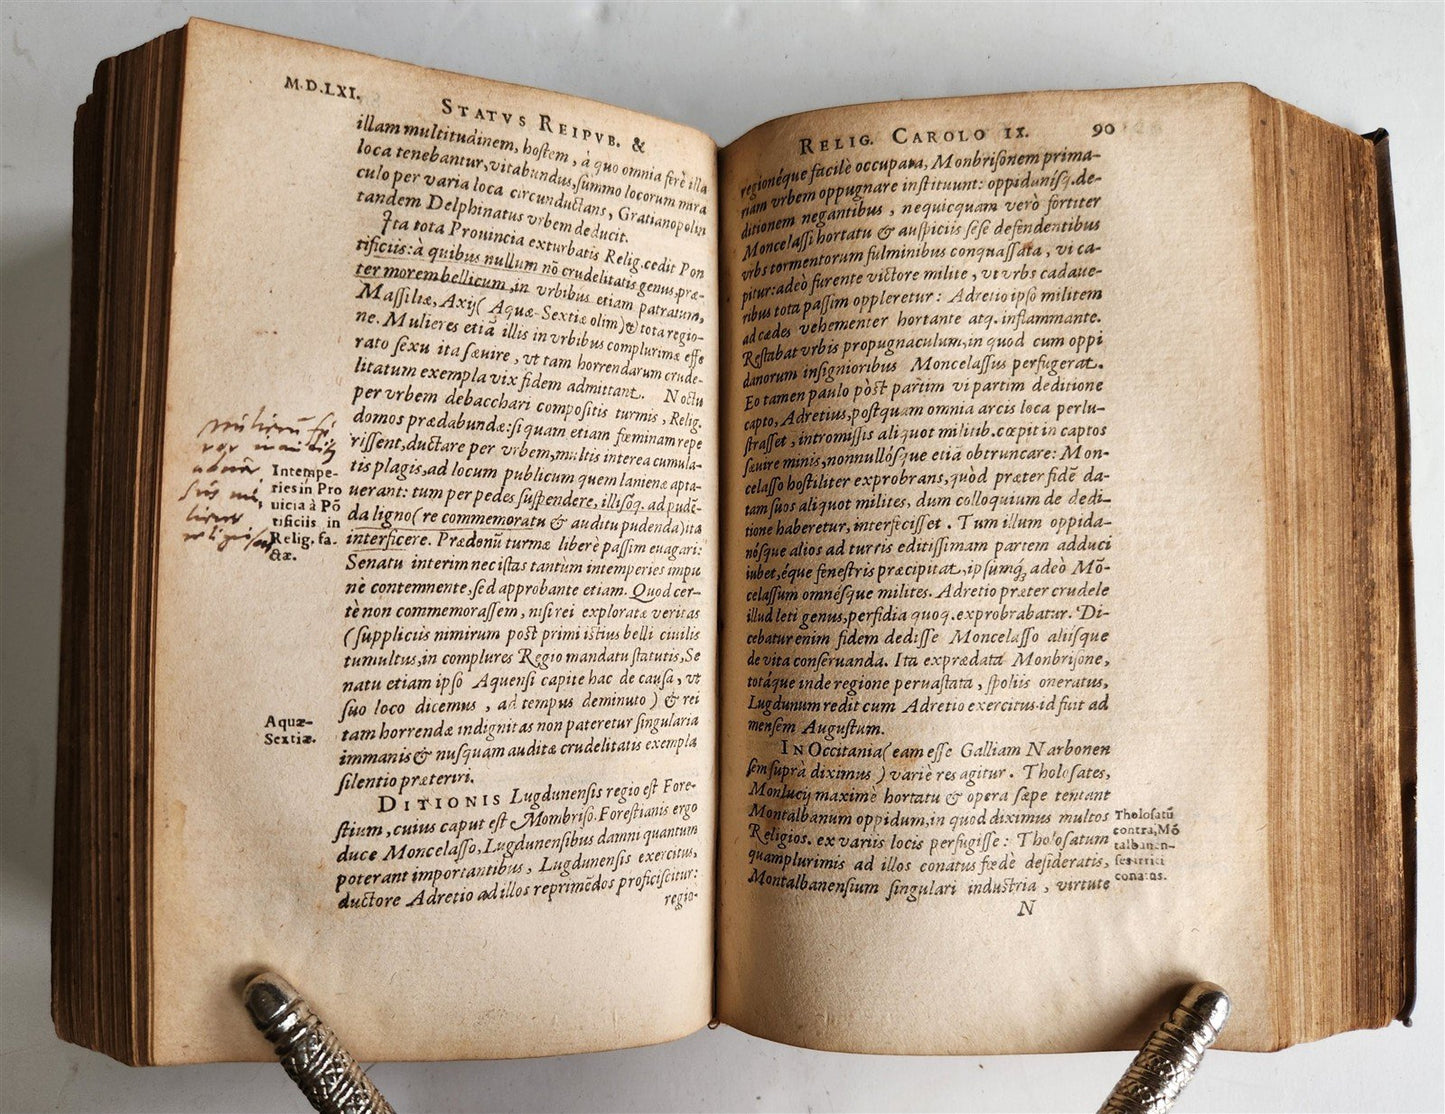 M.D.LXI.
STATVS REIPVB. &
illam multitudinem, hostem, à quo omnia ferè illa
loca tenebantur, vitabundus, summo locorum mira
culo per varia loca circunductans, Gratianopolin
tandem Delphinatus vrbem deducit.
Ita tota Prouincia exturbatis Relig. cedit Pon
tificiis: à quibus nullum nō crudelitatis genus, præ-
ter morem bellicum, in vrbibus etiam patratum,
Massiliæ, Axij (Aquæ-Sextiæ olim) & tota regio-
ne. Mulieres etiā illis in vrbibus complurimæ effe
rato sexu ita sæuire, vt tam horrendarum crude-
litatum exempla vix fidem admittant. Noctu
per vrbem debacchari compositis turmis, Relig.
domos prædabundæ: si quam etiam fœminam repe
rissent, ductare per vrbem, multis interea cumula-
tis plagis, ad locum publicum quem lanienæ apta-
uerant: tum per pedes suspendere, illisóq. ad pudē-
da ligno (re commemoratu & auditu pudenda) ita
interficere. Prædonū turmæ liberè passim euagari:
Senatu interim nec istas tantum intemperies impu
nè contemnente, sed approbante etiam. Quod cer-
tè non commemorassem, nisi rei exploratæ veritas
(suppliciis nimirum post primi istius belli ciuilis
tumultus, in complures Regio mandatu statutis, Se
natu etiam ipso Aquensi capite hac de causa, vt
suo loco dicemus, ad tempus deminuto) & rei
tam horrendæ indignitas non pateretur singularia
immanis & nusquam auditæ crudelitatis exempla
silentio præteriri.
DITIONIS Lugdunensis regio est Fore-
stium, cuius caput est Mombriso. Forestianis ergo
duce Moncelasso, Lugdunensibus damni quantum
poterant importantibus, Lugdunensis exercitus,
ductore Adretio ad illos reprimēdos proficiscitur:
regio-
Intempe-
ries in Pro
uicia à Pō
tificiis in
Relig. fa-
ctæ.
Aquæ-
Sextiæ.
RELIG. CAROLO IX. 90
regionéque facilè occupata, Monbrisonem prima-
riam vrbem oppugnare instituunt: oppidanisq. de-
ditionem negantibus, nequicquam verò fortiter
Moncelassi hortatu & auspiciis sese defendentibus
vrbs tormentorum fulminibus conquassata, vi ca-
pitur: adeò furente victore milite, vt vrbs cadaue-
ribus tota passim oppleretur: Adretio ipso militem
ad cædes vehementer hortante atq. inflammante.
Restabat vrbis propugnaculum, in quod cum oppi
danorum insignioribus Moncelassus perfugerat.
Eo tamen paulo pòst partim vi partim deditione
capto, Adretius, postquam omnia arcis loca perlu-
strasset, intromissis aliquot militib. cœpit in captos
sæuire minis, nonnullósque etiā obtruncare: Mon-
celasso hostiliter exprobrans, quòd præter fidē da-
tam suos aliquot milites, dum colloquium de dedi-
tione haberetur, interfecisset. Tum illum oppida-
nósque alios ad turris editissimam partem adduci
iubet, éque fenestris præcipitat, ipsumq́ adeò Mō-
celassum omnésque milites. Adretio præter crudele
illud leti genus, perfidia quoq. exprobrabatur. Di-
cebatur enim fidem dedisse Moncelasso aliisque
de vita conseruanda. Ita exprædata Monbrisone,
totáque inde regione peruastata, spoliis oneratus,
Lugdunum redit cum Adretio exercitus. id fuit ad
mensem Augustum.
IN Occitania (eam esse Galliam Narbonen
sem suprà diximus) variè res agitur. Tholosates,
Monlucij maximè hortatu & opera sæpe tentant
Montalbanum oppidum, in quod diximus multos
Religios. ex variis locis perfugisse: Tholosatum
quamplurimis ad illos conatus fœdè desideratis,
Montalbanensium singulari industria, virtute
N
Tholosatū
contra, Mō
talbanen-
ses irriti
conatus.